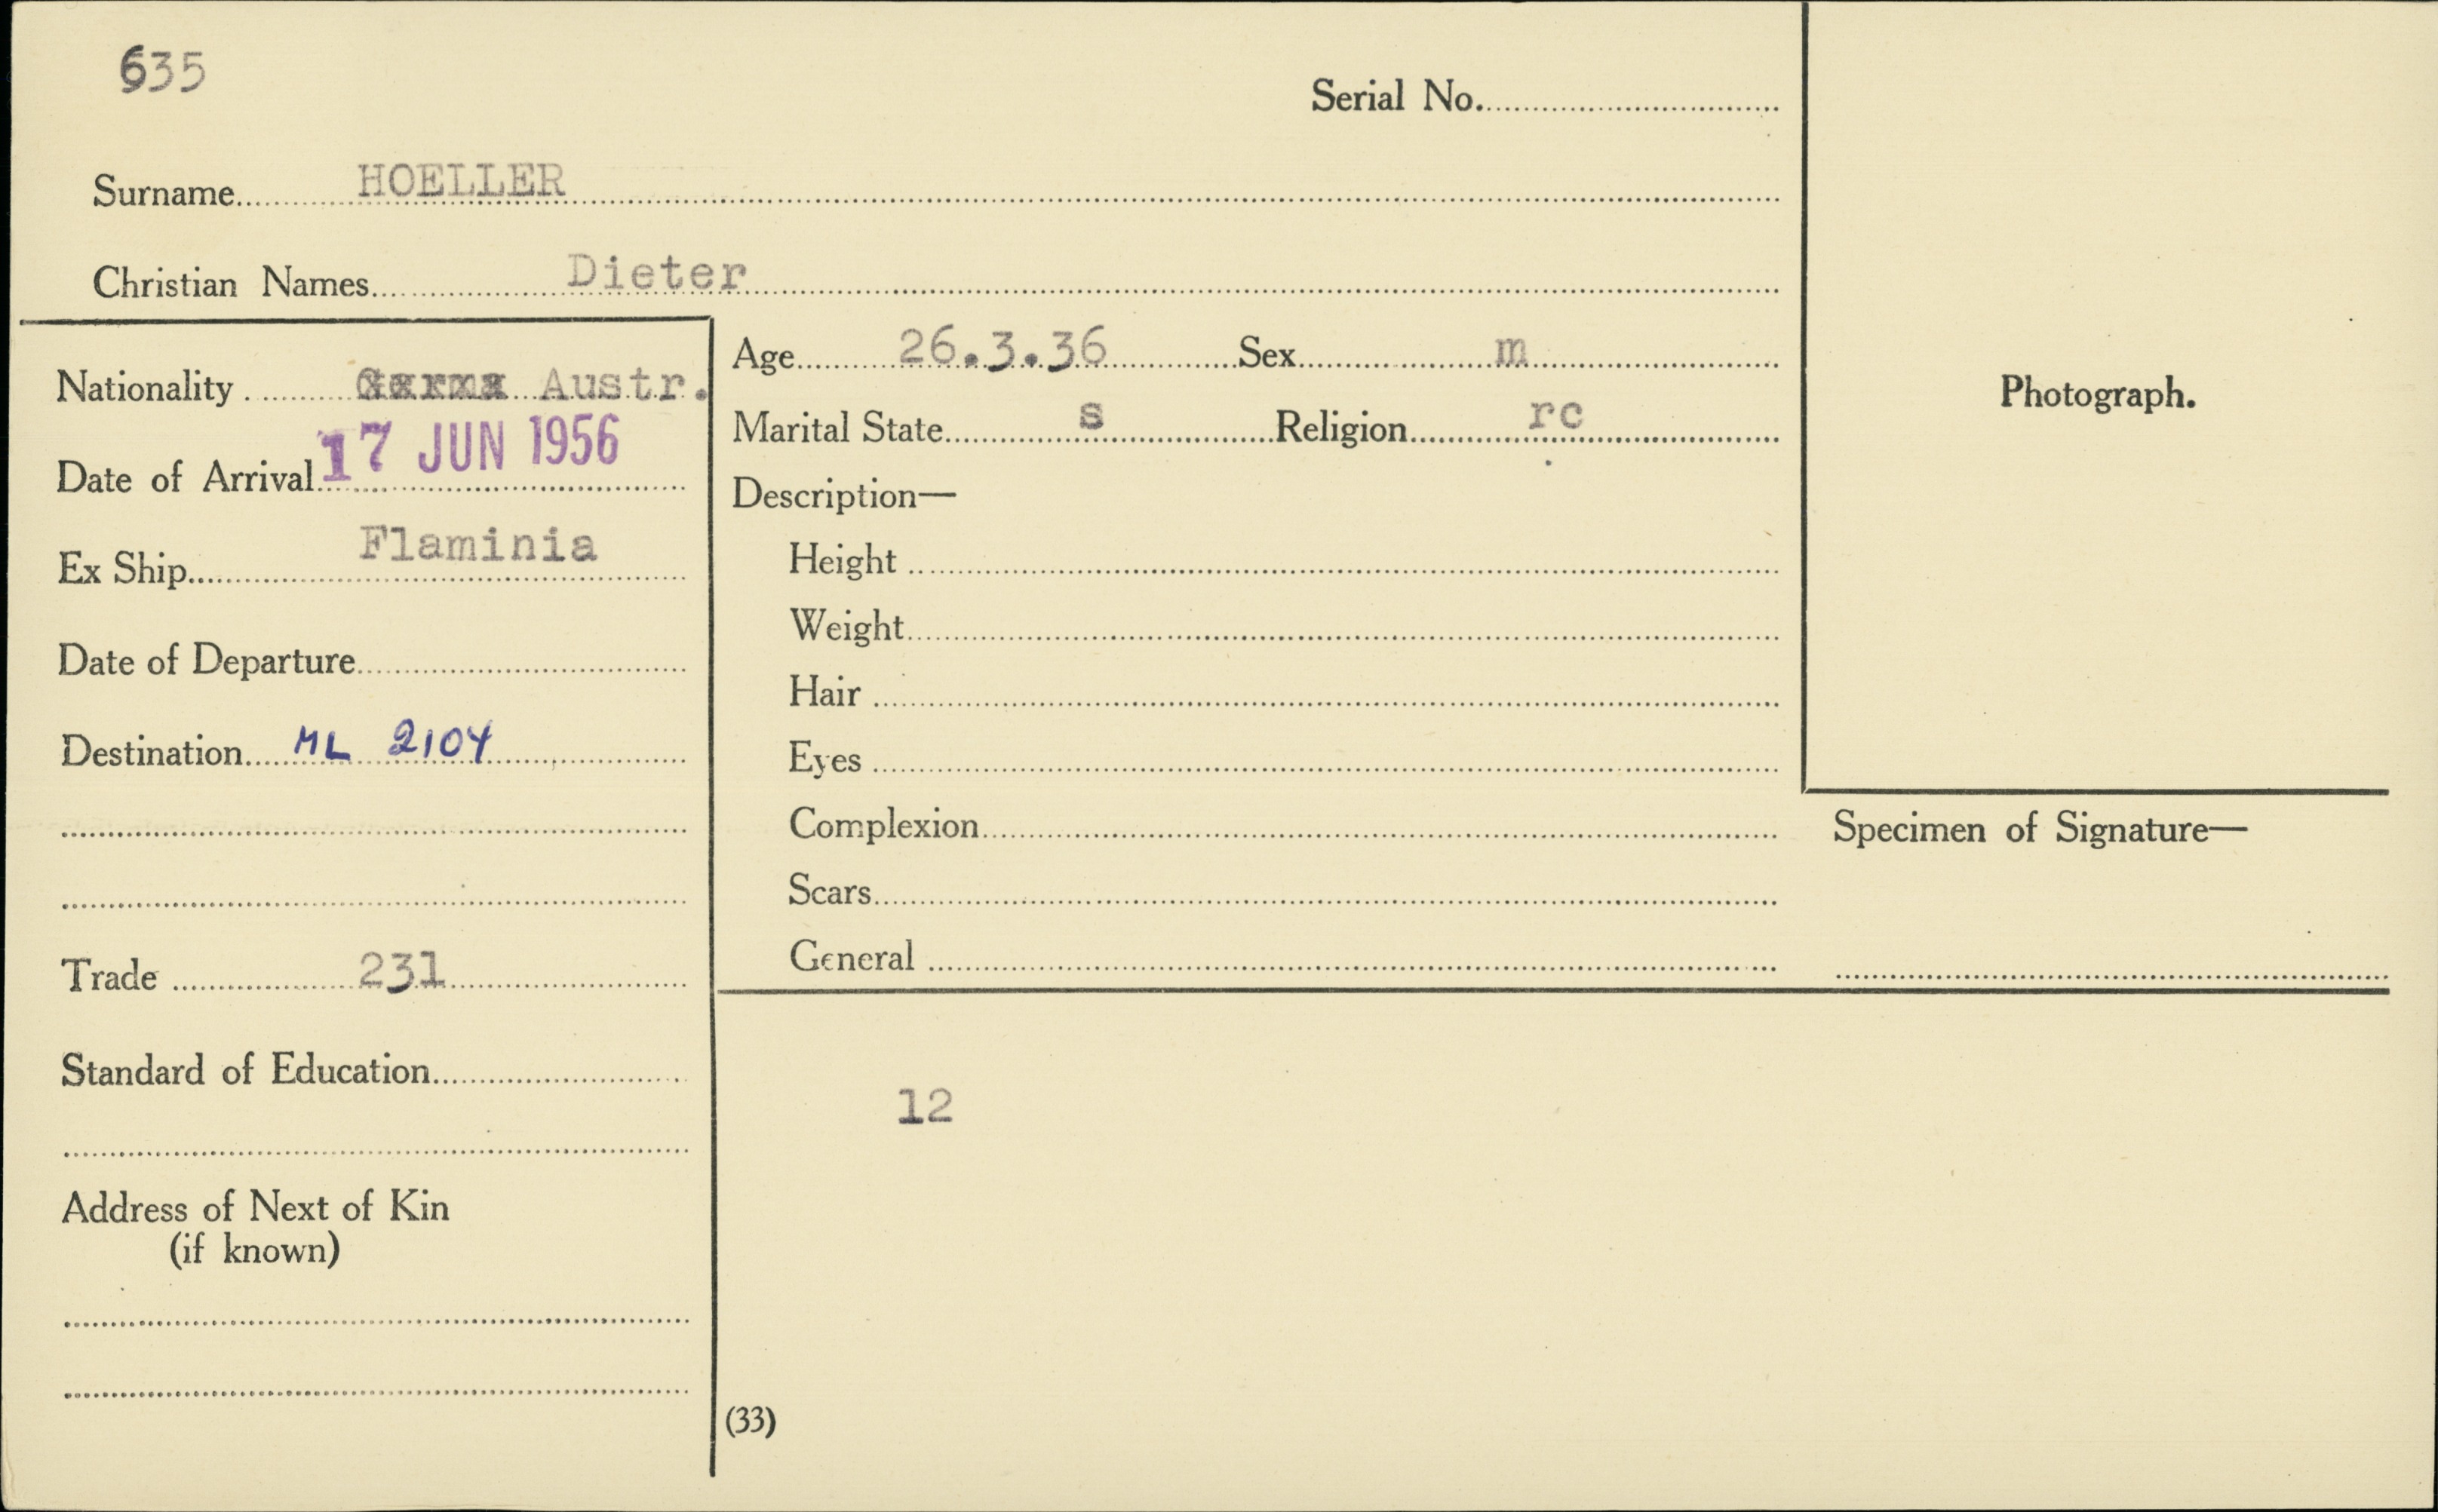 635
Serial No.
Surname HOELLER
Christian Names Dieter
Nationality Austr.
Date of Arrival 17 JUN 1956
Ex Ship Flaminia
Date of Departure
Destination ML 2104
Trade 231
Standard of Education
Address of Next of Kin
(if known)
Age 26.3.36 Sex m
Marital State s Religion rc
Description—
Height
Weight
Hair
Eyes
Complexion
Scars
General
12
(33)
Photograph.
Specimen of Signature—